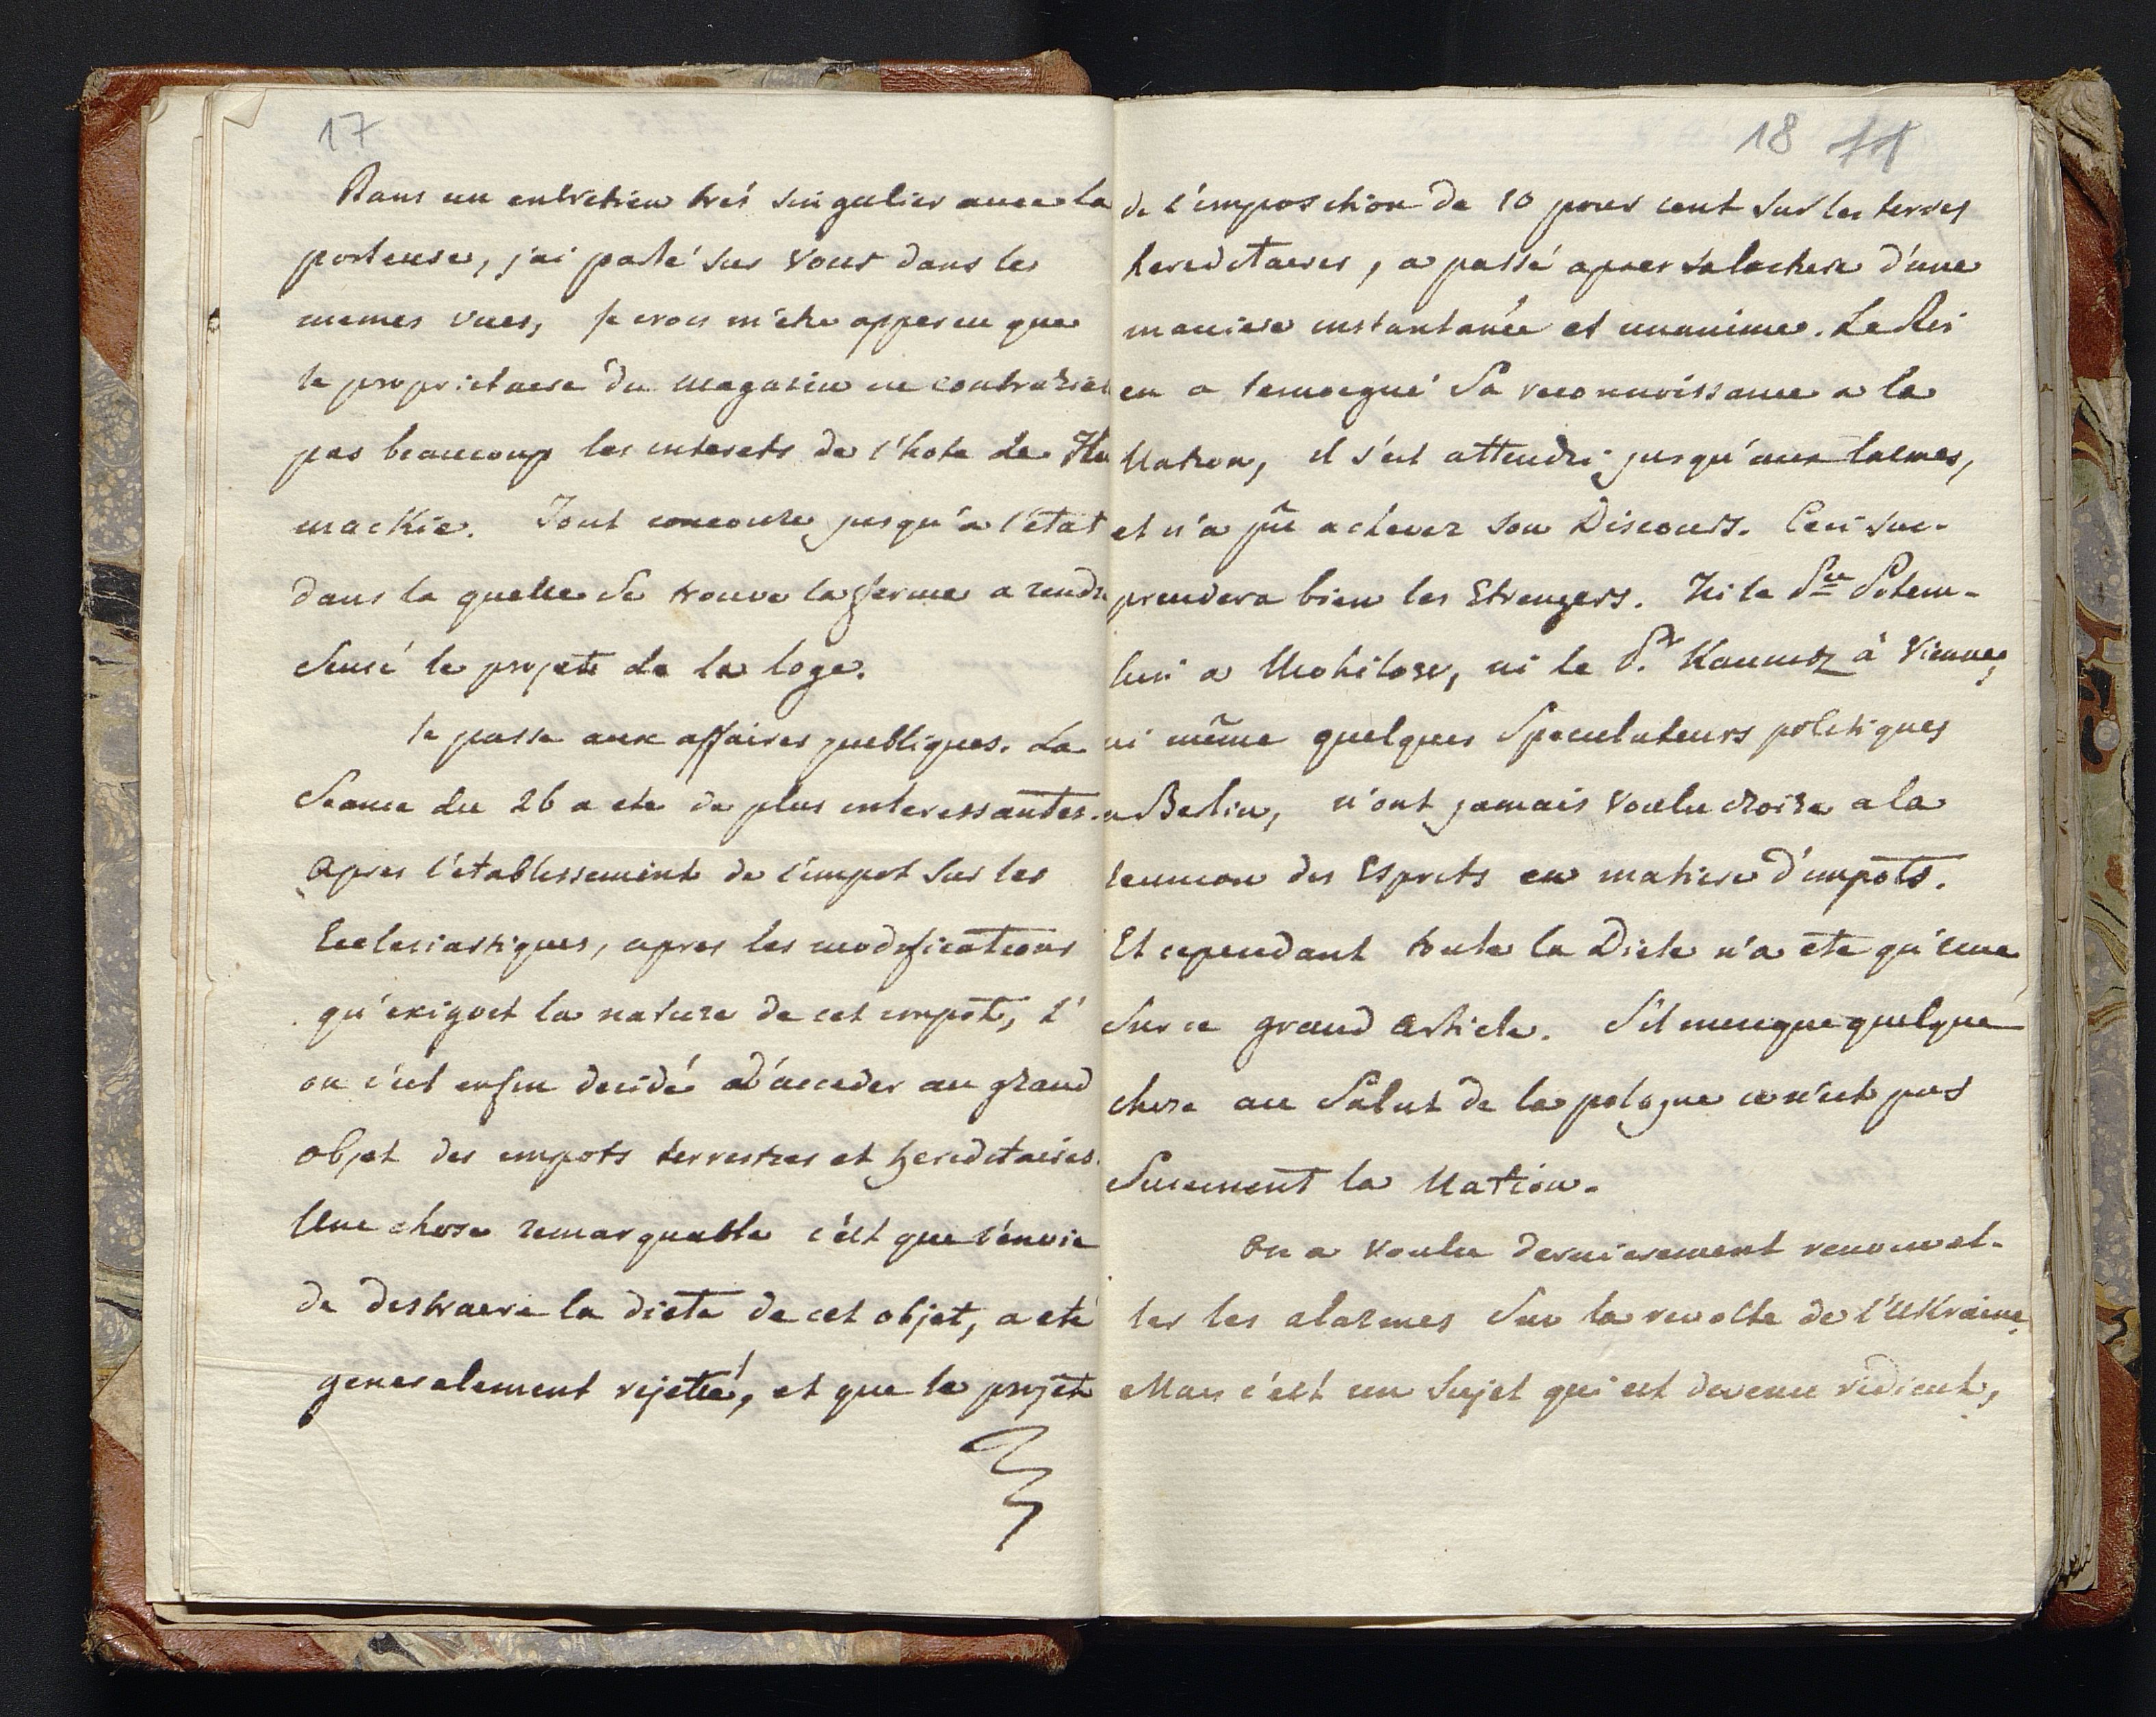 17
Dans un entretien trés singulier avec la
porteuse, j'ai parlé sur vous dans les
memes vues, je crois m'etre apperçu que
le proprietaire du magasin ne contrarie
pas beaucoup les interets de l'hote de Hu
mackie. Tout concoure jusqu'a l'état
dans la quelle se trouve la ferme a rendre
sensé le projete de la loge.
Je passe aux affaires publiques. La
Seance du 26 a ete de plus interessantes.
Apres l'établissement de l'impot sur les
Ecclesiastiques, apres les modifications
qu'exigoit la nature de cet impôt, l'
on s'est enfin decidé d'acceder au grand
objet des impots terrestres et hereditaires.
Une chose remarquable c'est que l'envie
de destraire la diete de cet objet, a eté
generalement rejetté, et que le projet
18 11
de l'imposition de 10 pour cent sur les terres
hereditaires, a passé apres d'une
maniere instantanée et unanime. Le Roi
en a temoigné sa reconnoissance a la
Nation, il s'est attendri jusqu'aux larmes,
et n'a pû achever son Discours. Ceci sur-
prendera bien les Etrangers. Ni le Pce Potem-
kin a Mohilow, ni le Pr Kaunitz à Vienne,
ni même quelques Speculateurs politiques
a Berlin, n'ont jamais voulu croire a la
reunion des Esprits en matiere d'impôts.
Et cependant toute la Diete n'a ete qu'une
sur ce grand article. S'il manque quelque
chose au Salut de la pologne ce n'est pas
surement la Nation.
On a voulu dernierement renouvel-
ler les alarmes sur la revolte de l'Ukraine,
Mais c'est un sujet qui est devenu ridicul,